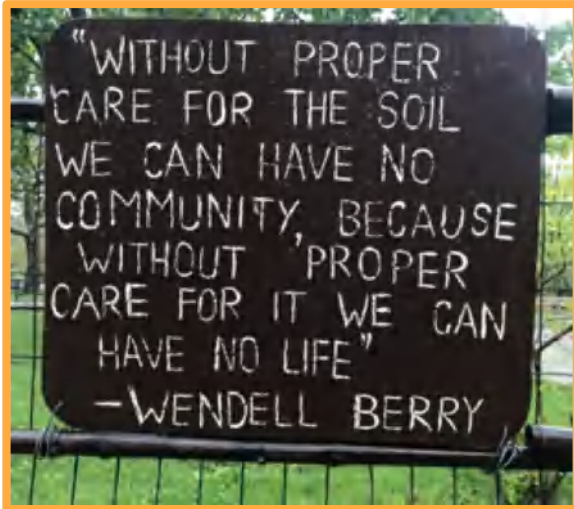 "WITHOUT PROPER
CARE FOR THE SOIL
WE CAN HAVE NO
COMMUNITY, BECAUSE
WITHOUT PROPER
CARE FOR IT WE CAN
HAVE NO LIFE"
-WENDELL BERRY